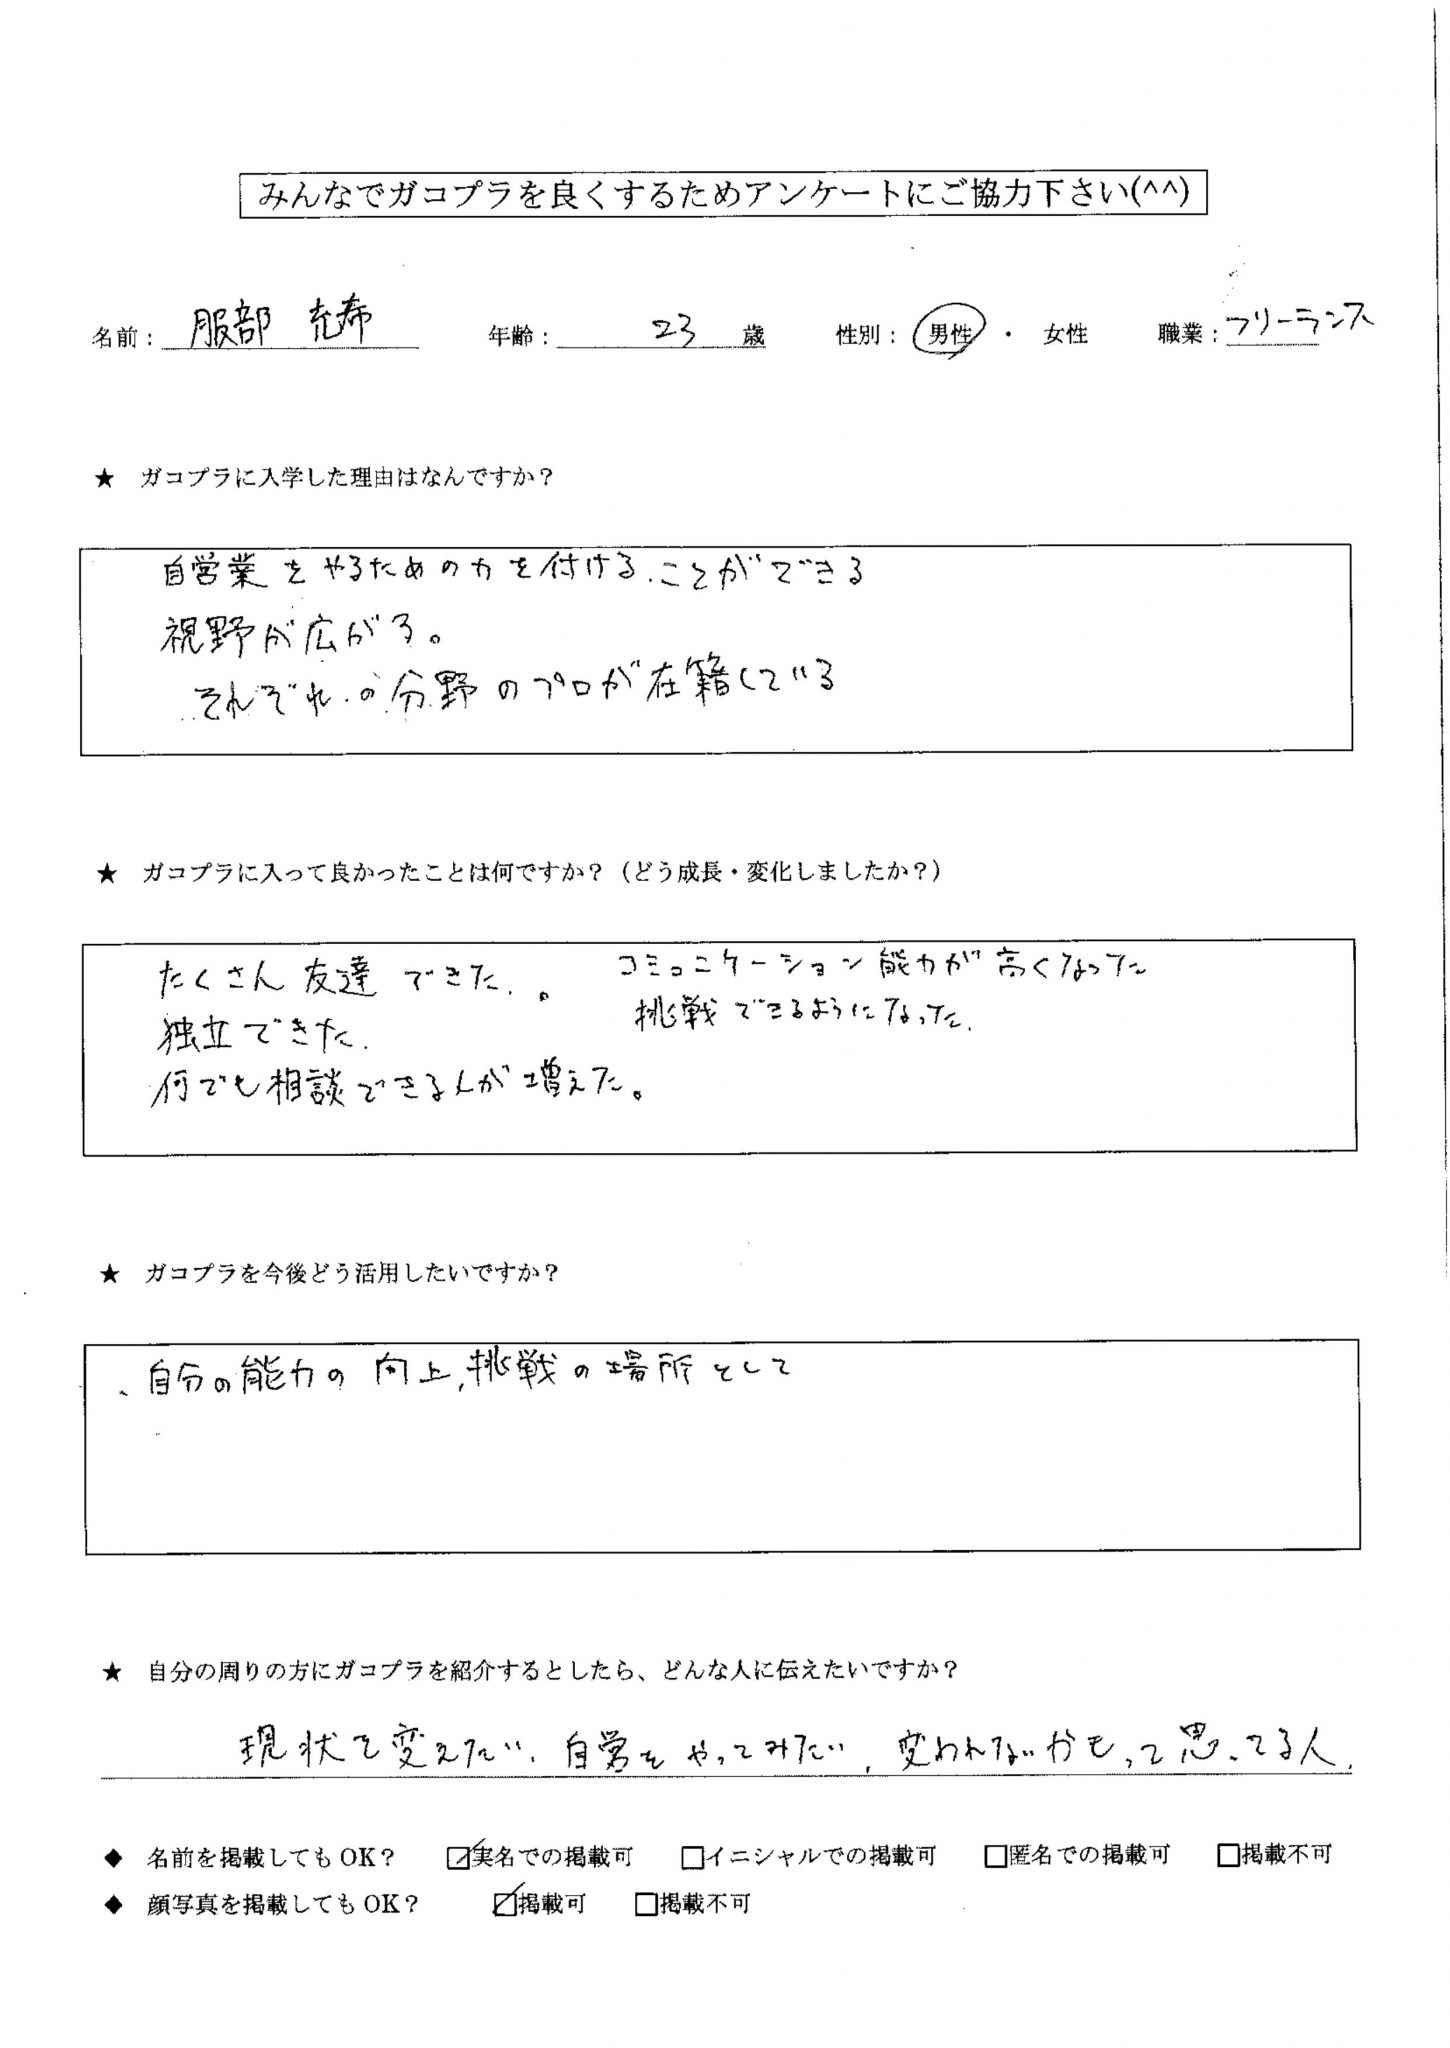 みんなでガコプラを良くするためアンケートにご協力下さい(^^)
名前： 服部 充希 年齢： 23 歳 性別： 男性 ・ 女性 職業：フリーランス
★ ガコプラに入学した理由はなんですか？
自営業をやるための力を付けることができる
視野が広がる。
それぞれの分野のプロが在籍している
★ ガコプラに入って良かったことは何ですか？（どう成長・変化しましたか？）
たくさん友達できた。 コミュニケーション能力が高くなった
独立できた. 挑戦できるようになった.
何でも相談できる人が増えた。
★ ガコプラを今後どう活用したいですか？
、自分の能力の向上,挑戦の場所として
★ 自分の周りの方にガコプラを紹介するとしたら、どんな人に伝えたいですか？
現状を変えたい、自営をやってみたい、変われないかもって思ってる人.
◆ 名前を掲載してもOK？ ☑実名での掲載可 □イニシャルでの掲載可 □匿名での掲載可 □掲載不可
◆ 顔写真を掲載してもOK？ ☑掲載可 □掲載不可